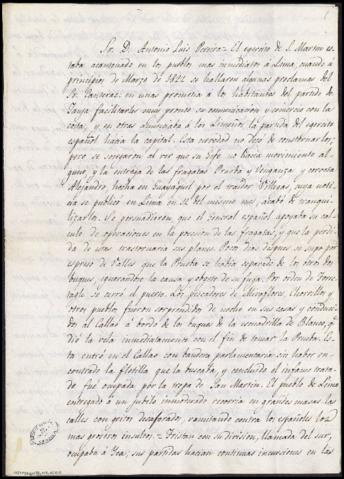 Sr. D. Antonio Luis Pereira = El egercito de S. Martin es-
taba acantonado en los pueblos mas inmediatos á Lima, cuando á
principios de Marzo de 1822 se hallaron algunas proclamas del
Sr. Canterac en una prometia á los habitantes del partido de
Jauja facilitarles muy pronto su comunicacion y comercio con la
costa; y en otras anunciaba á los Limeños la partida del egercito
español hacia la capital. Esta novedad no dejó de consternarlos;
pero se sosegaron al ver que su Gefe no hacia movimiento al-
guno, y la entrega de las fragatas Prueba y Venganza, y corveta
Alejandro, hecha en Guayaquil por el traidor Villegas, cuya noti-
cia se publicó en Lima en 12 del mismo mes, acabó de tranqui-
lizarlos. Se persuadieron que el General español apoyaba su cal-
culo de operaciones en la posesion de las fragatas, y que la perdi-
da de estas trastornaria sus planes. Pocos dias despues se supo por
espreso de Valles que la Prueba se habia separado de los otros dos
buques, ignorandose la causa y objeto de su fuga. Por orden de Torre-
tagle se cerró el puerto. Los pescadores de Miraflores, Chorrillos y
otros pueblos fueron sorprendidos de noche en sus casas y conduci-
dos al Callao á bordo de los buques de la escuadrilla de Blanco, q.e
dió la vela inmediatamente con el fin de tomar la Prueba. Es-
ta entró en el Callao con bandera parlamentaria sin haber en-
contrado la flotilla que la buscaba, y concluido el infame trata-
do fue ocupada por la tropa de San Martin. El pueblo de Lima
entregado á un subito inmoderado recorria en grandes masas las
calles con gritos desaforados, vomitando contra los españoles los
mas groseros insultos. = Tristan con su division, llamada del sur,
ocupaba á Yca; sus partidas hacian continuas incursiones en las